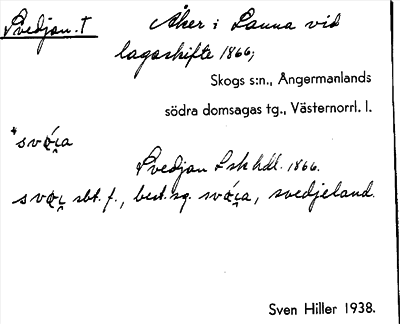 Svedjan. T Åker i Sanna vid
lagaskifte 1866;
Skogs s:n., Ångermanlands
södra domsagas tg., Västernorrl. l.
Svedjan Lskhdl. 1866.
sbt. f., best. sg. svedjeland.
Sven Hiller 1938.